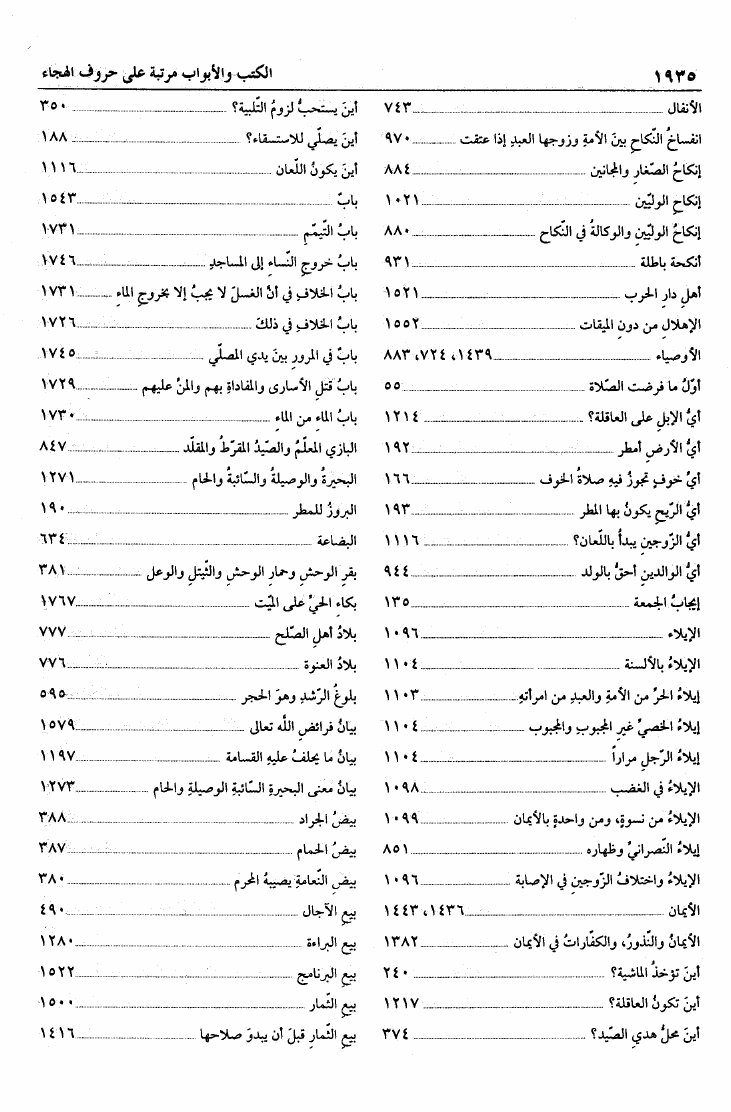 ١٩٣٥
الكتب والأبواب مرتبة على حروف الهجاء
الأنفال ٧٤٣
انفساخُ النّكاحِ بينَ الأمةِ وزوجها العبدِ إذا عتقت ٩٧٠
إنكاحُ الصّغارِ والمجانين ٨٨٤
إنكاحِ الوليّين ١٠٢١
إنكاحُ الوليّينِ والوكالةُ في النّكاح ٨٨٠
أنكحة باطلة ٩٣١
أهلِ دارِ الحرب ١٥٢١
الإهلالِ من دونِ الميقات ١٥٥٢
الأوصياء ١٤٣٩، ٧٢٤، ٨٨٣
أوّلُ ما فرضت الصّلاة ٥٥
أيُّ الإبلِ على العاقلة؟ ١٢١٤
أيُّ الأرضِ أمطر ١٩٢
أيُّ خوفٍ تجوزُ فيهِ صلاةُ الخوف ١٦٦
أيُّ الرّيحِ يكونُ بها المطر ١٩٣
أيُّ الزّوجينِ يبدأُ باللّعان؟ ١١١٦
أيُّ الوالدينِ أحقُّ بالولد ٩٤٤
إيجابُ الجمعة ١٣٥
الإيلاء ١٠٩٦
الإيلاءُ بالألسنة ١١٠٤
إيلاءُ الحرِّ من الأمةِ والعبدِ من امرأتهِ ١١٠٣
إيلاءُ الخصيِّ غيرِ المجبوبِ والمجبوب ١١٠٤
إيلاءُ الرّجلِ مراراً ١١٠٤
الإيلاءُ في الغضب ١٠٩٨
الإيلاءُ من نسوةٍ، ومن واحدةٍ بالأيمان ١٠٩٩
إيلاءُ النّصرانيِّ وظهاره ٨٥١
الإيلاءُ واختلافُ الزّوجينِ في الإصابة ١٠٩٦
الأيمان ١٤٣٦، ١٤٤٣
الأيمانُ والنّذورُ، والكفّاراتُ في الأيمان ١٣٨٢
أينَ تؤخذُ الماشية؟ ٢٤٠
أينَ تكونُ العاقلة؟ ١٢١٧
أينَ محلُّ هديِ الصّيد؟ ٣٧٤
أينَ يستحبُّ لزومُ التّلبية؟ ٣٥٠
أينَ يصلّي للاستسقاء؟ ١٨٨
أينَ يكونُ اللّعان ١١١٦
بابٌ ١٥٤٣
بابُ التّيمّمِ ١٧٣١
بابُ خروجِ النّساءِ إلى المساجدِ ١٧٤٦
بابُ الخلافِ في أنّ الغسلَ لا يجبُ إلا بخروجِ الماءِ ١٧٣١
بابُ الخلافِ في ذلكَ ١٧٢٦
بابٌ في المرورِ بينَ يديِ المصلّي ١٧٤٥
بابُ قتلِ الأسارى والمفاداةِ بهم والمنِّ عليهم ١٧٢٩
بابُ الماءِ من الماءِ ١٧٣٠
البازي المعلّمُ والصّيدُ المقرّطُ والمقلّد ٨٤٧
البحيرةُ والوصيلةُ والسّائبةُ والحام ١٢٧١
البروزُ للمطر ١٩٠
البضاعة ٦٣٤
بقرِ الوحشِ وحمارِ الوحشِ والثّيتلِ والوعل ٣٨١
بكاءِ الحيِّ على الميّت ١٧٦٧
بلادُ أهلِ الصّلح ٧٧٧
بلادُ العنوة ٧٧٦
بلوغُ الرّشدِ وهوَ الحجر ٥٩٥
بيانُ فرائضِ اللّه تعالى ١٥٧٩
بيانُ ما يحلفُ عليهِ القسامة ١١٩٧
بيانُ معنى البحيرةِ السّائبةِ الوصيلةِ والحام ١٢٧٣
بيضُ الجراد ٣٨٨
بيضُ الحمام ٣٨٧
بيضِ النّعامةِ يصيبهُ المحرم ٣٨٠
بيعِ الآجال ٤٩٠
بيع البراءة ١٢٨٠
بيعِ البرنامج ١٥٢٢
بيعِ الثّمار ١٥٠٠
بيعِ الثّمارِ قبلَ أن يبدوَ صلاحها ١٤١٦